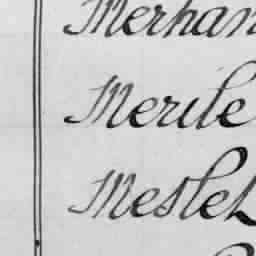 Merhan
Merile
Meslet